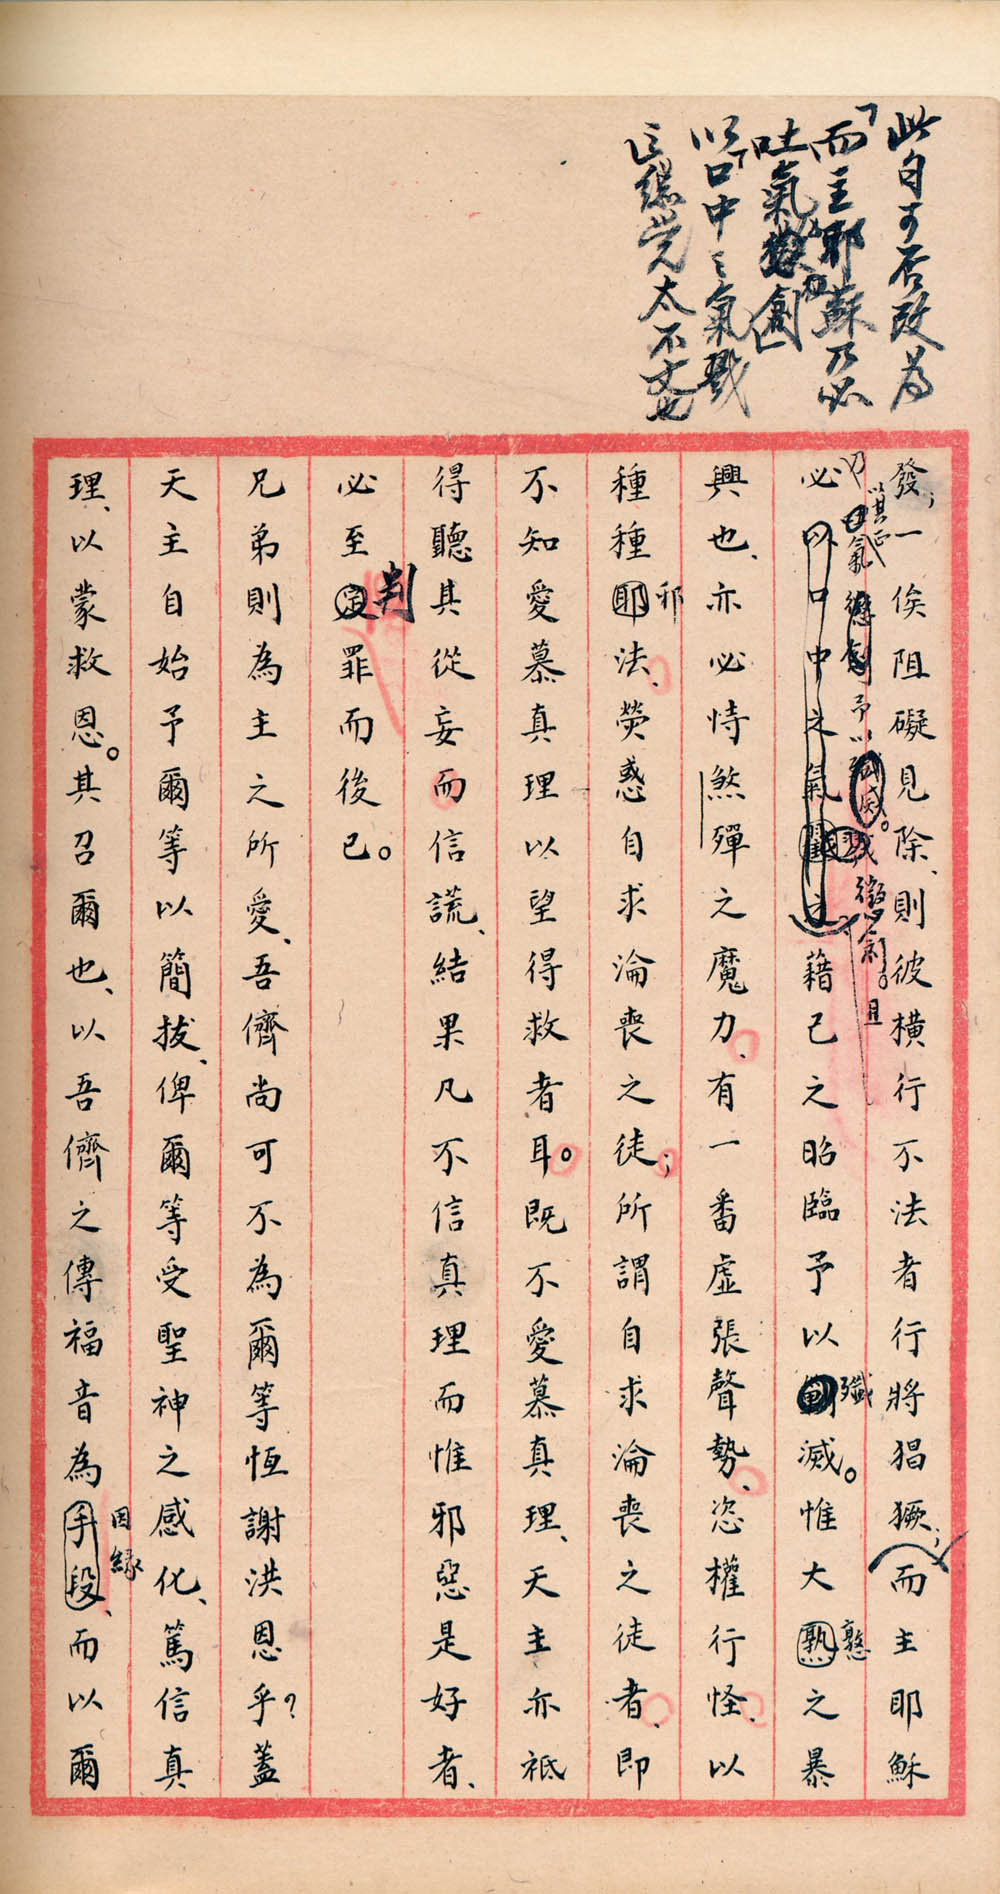 此句可否改為
「而主耶蘇乃必
吐氣懲創」
以「口中之氣戮
之」總覺太不文也
發；一俟阻礙見除、則彼橫行不法者行將猖獗；而主耶穌
以其正
口氣懲創予以
威。戮懲創。且
必以口中之氣之藉己之昭臨予以滅。惟大熟之暴
殲
憝
興也、亦必恃煞殫之魔力、有一番虛張聲勢、恣權行怪、以
種種耶法、熒惑自求淪喪之徒；所謂自求淪喪之徒者、即
邪
不知愛慕真理以望得救者耳。既不愛慕真理、天主亦祇
得聽其從妄而信謊、結果凡不信真理而惟邪惡是好者、
判
必至定罪而後已。
兄弟則為主之所愛、吾儕尚可不為爾等恆謝洪恩乎？蓋
天主自始予爾等以簡拔、俾爾等受聖神之感化、篤信真
理、以蒙救恩。其召爾也、以吾儕之傳福音為手段、而以爾
因緣